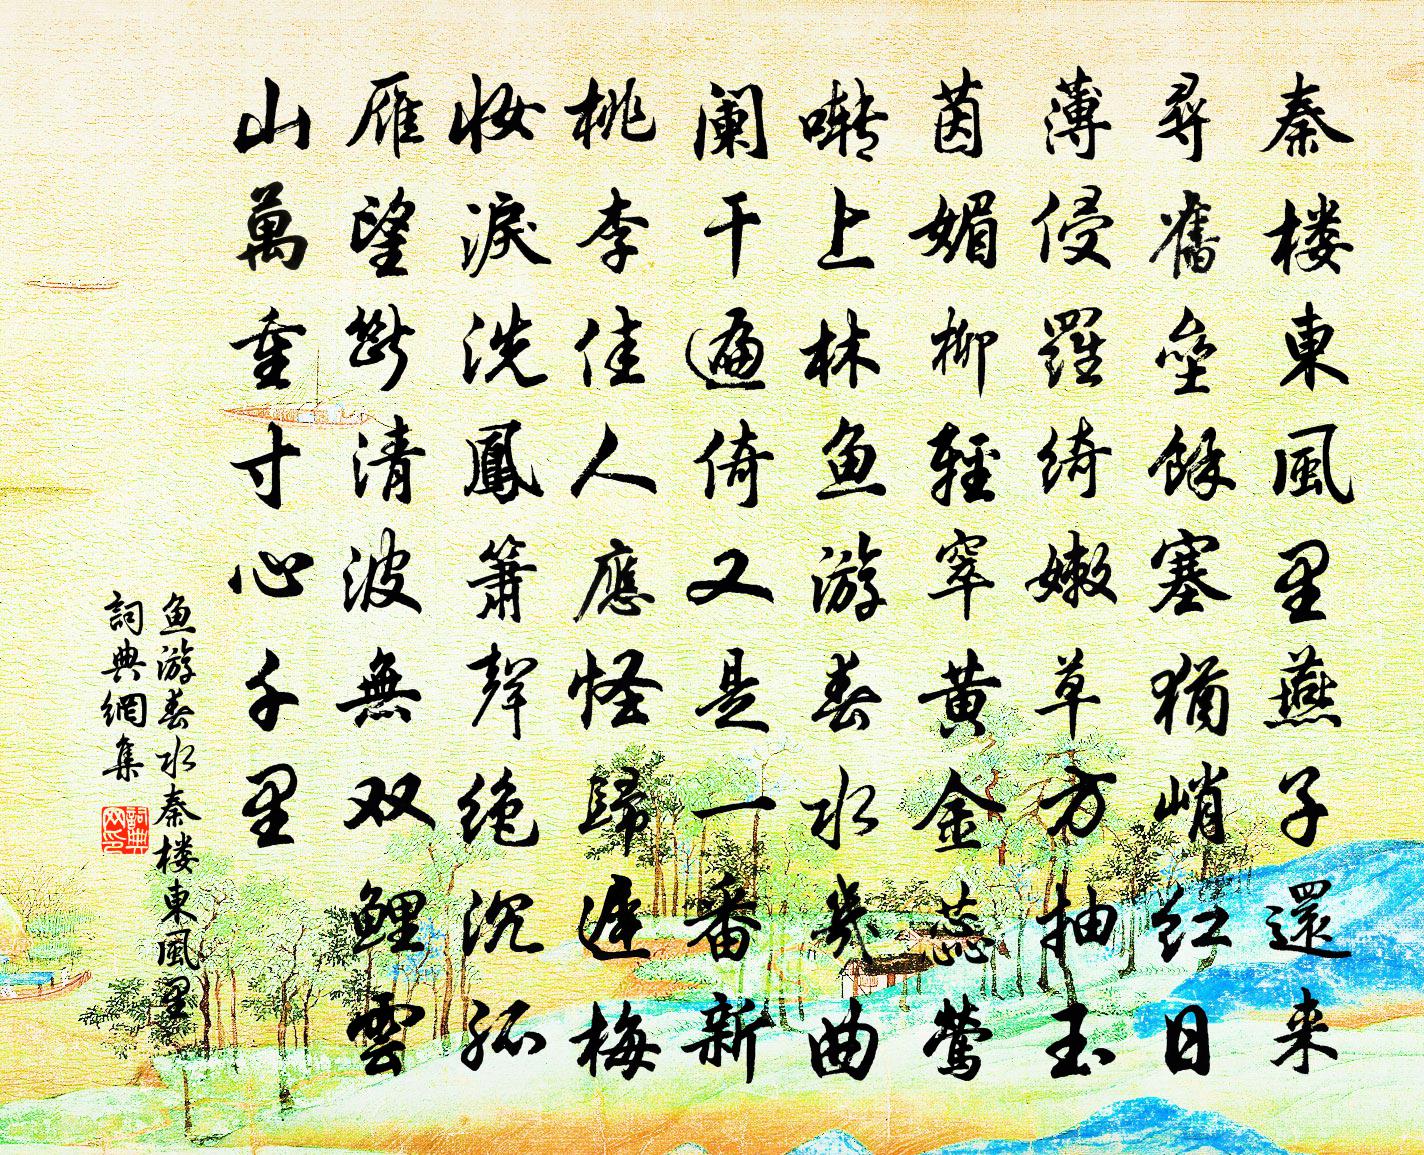 秦楼東風里燕子還来
尋舊壘餘塞猶峭紅日
薄侵羅綺嫩草方抽玉
茵媚柳輕窣黄金蕊鶯
囀上林魚游春水幾曲
阑干遍倚又是一番新
桃李佳人應怪歸遲梅
妝淚洗鳳簫聲絶沉孤
雁望斷清波無双鯉雲
山萬重寸心千里
魚游春水秦楼東風里
詞典網集
詞典网印